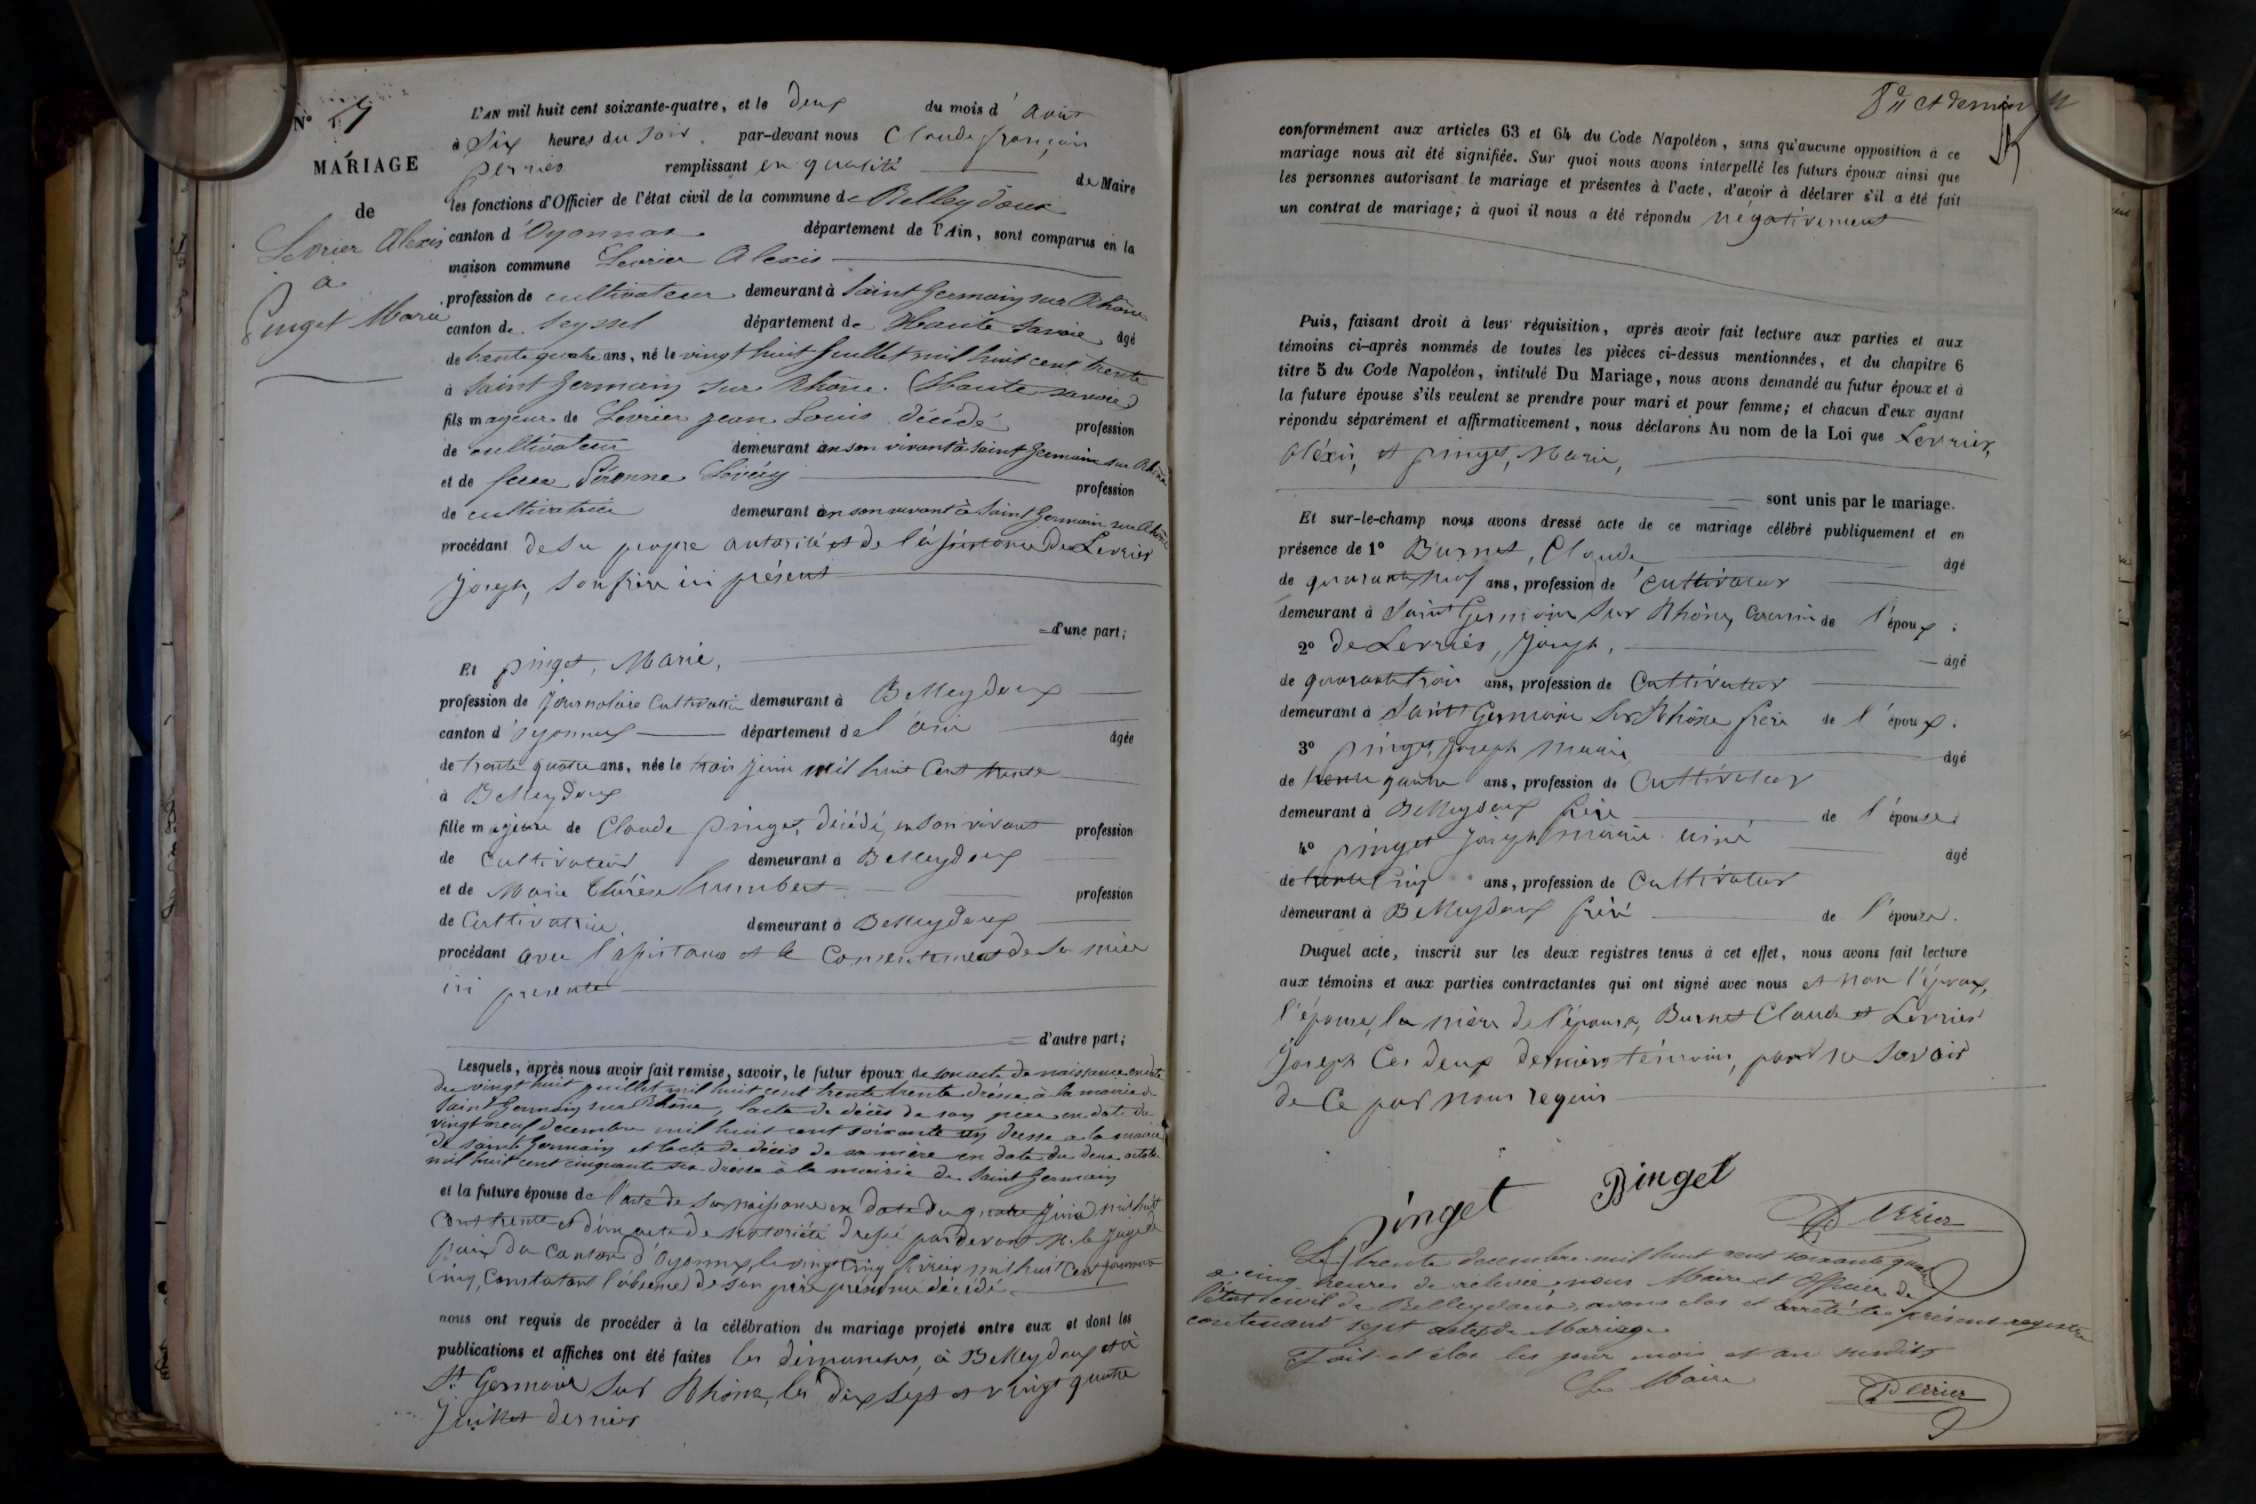 N° 7
MARIAGE
de
Levrier Alexis
à
Pinget Marie
L'AN mil huit cent soixante-quatre, et le deux du mois d'août
à Six heures du soir, par-devant nous Claude françois
perrier remplissant en qualité de Maire
les fonctions d'Officier de l'état civil de la commune de Belleydoux
canton d'Oyonnax département de l'Ain, sont comparus en la
maison commune Levrier Alexis
profession de cultivateur demeurant à Saint Germain sur Rhône
canton de Seyssel département de Haute Savoie âgé
de trente quatre ans, né le vingt huit juillet mil huit cent trente
à Saint Germain sur Rhône (Haute savoie)
fils mageur de Levrier jean Louis décédé profession
de cultivateur demeurant en son vivant à Saint Germain sur Rhône
et de feue Péronne profession
de cultivatrice demeurant en son vivant à Saint Germain sur Rhône
procédant de sa propre autorité et de l'assistance de Levrier
Joseph, son frère ici présent
d'une part;
Et pinget, Marie,
profession de Journalaire Cultivatrice demeurant à Belleydoux
canton d'oyonnax département de l'ain âgée
de trente quatre ans, née le trois juin mil huit Cent trente
à Belleydoux
fille majeure de Claude pinget, décédé, en son vivant profession
de Cultivateur demeurant à Belleydoux
et de Marie thérèse humbert profession
de Cultivatrice, demeurant à Belleydoux
procédant avec l'assistance et le Consentement de sa mère
ici présente
d'autre part;
Lesquels, après nous avoir fait remise, savoir, le futur époux de son acte de naissance en date
du vingt huit juillet mil huit cent trente trente dressé à la mairie de
Saint Germain sur Rhône, l'acte de décès de son père en date du
vingt neuf decembre mil huit cent soixante un dressé a la mairie
de Saint Germain et l'acte de décès de sa mère en date du deux octobre
mil huit cent cinquante six dressé à la mairie de Saint Germain
et la future épouse de l'acte de Sa naissance en date du quatre juin mil huit
Cent trente et d'un acte de notoriété dressé pardevant M. le juge de
paix du Canton d'Oyonnax le vingt cinq février mil huit Cent
cinq, Constatant l'absence de son père présumé décédé.
nous ont requis de procéder à la célébration du mariage projeté entre eux et dont les
publications et affiches ont été faites les dimanches, à Belleydoux et à
St Germain Sur Rhône, les dix sept et vingt quatre
Juillet dernier
8e et dernier
conformément aux articles 63 et 64 du Code Napoléon, sans qu'aucune opposition à ce
mariage nous ait été signifiée. Sur quoi nous avons interpellé les futurs époux ainsi que
les personnes autorisant le mariage et présentes à l'acte, d'avoir à déclarer s'il a été fait
un contrat de mariage; à quoi il nous a été répondu négativement
Puis, faisant droit à leur réquisition, après avoir fait lecture aux parties et aux
témoins ci-après nommés de toutes les pièces ci-dessus mentionnées, et du chapitre 6
titre 5 du Code Napoléon, intitulé Du Mariage, nous avons demandé au futur époux et à
la future épouse s'ils veulent se prendre pour mari et pour femme; et chacun d'eux ayant
répondu séparément et affirmativement, nous déclarons Au nom de la Loi que Levrier,
Aléxis, et pinget, Marie,
sont unis par le mariage.
Et sur-le-champ nous avons dressé acte de ce mariage célébré publiquement et en
présence de 1° Burnet, Claude âgé
de quarante neuf ans, profession de Cultivateur
demeurant à Saint Germain Sur Rhône, Cousin de l'époux;
2° de Levrier, Joseph, âgé
de quarante trois ans, profession de Cultivateur
demeurant à Saint Germain Sur Rhône frère de l'époux.
3° pinget, Joseph marie âgé
de trente quatre ans, profession de Cultivateur
demeurant à Belleydoux frère de l'épouse
4° pinget Joseph marie ainé âgé
de trente cinq ans, profession de Cultivateur
demeurant à Belleydoux frère de l'épouse.
Duquel acte, inscrit sur les deux registres tenus à cet effet, nous avons fait lecture
aux témoins et aux parties contractantes qui ont signé avec nous et non l'époux,
l'épouse, la mère de l'épouse, Burnet Claude et Levrier
Joseph Ces deux derniers témoins, pour ne Savoir
de Ce par nous requis
pinget Pinget Perrier
Le trente decembre mil huit cent soixante quatre
a cinq heures de relevée, nous Maire et Officier de
l'état civil de Belleydoux, avons clos et arrêté le présent registre
contenant sept actes de Mariage
Fait et clos les jour mois et an susdits
Le Maire
Perrier